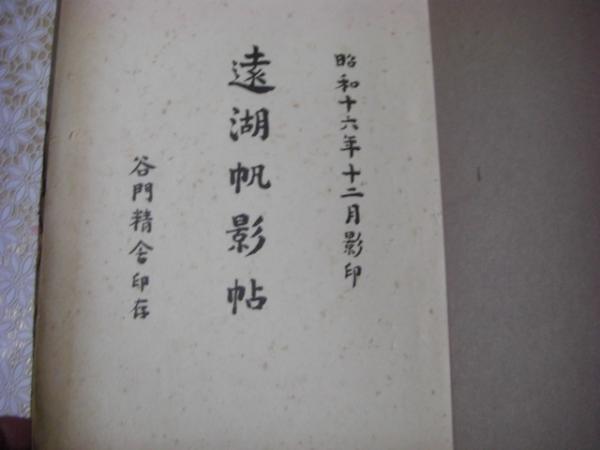 昭和十六年十二月影印
遠湖帆影帖
谷門精舍印存